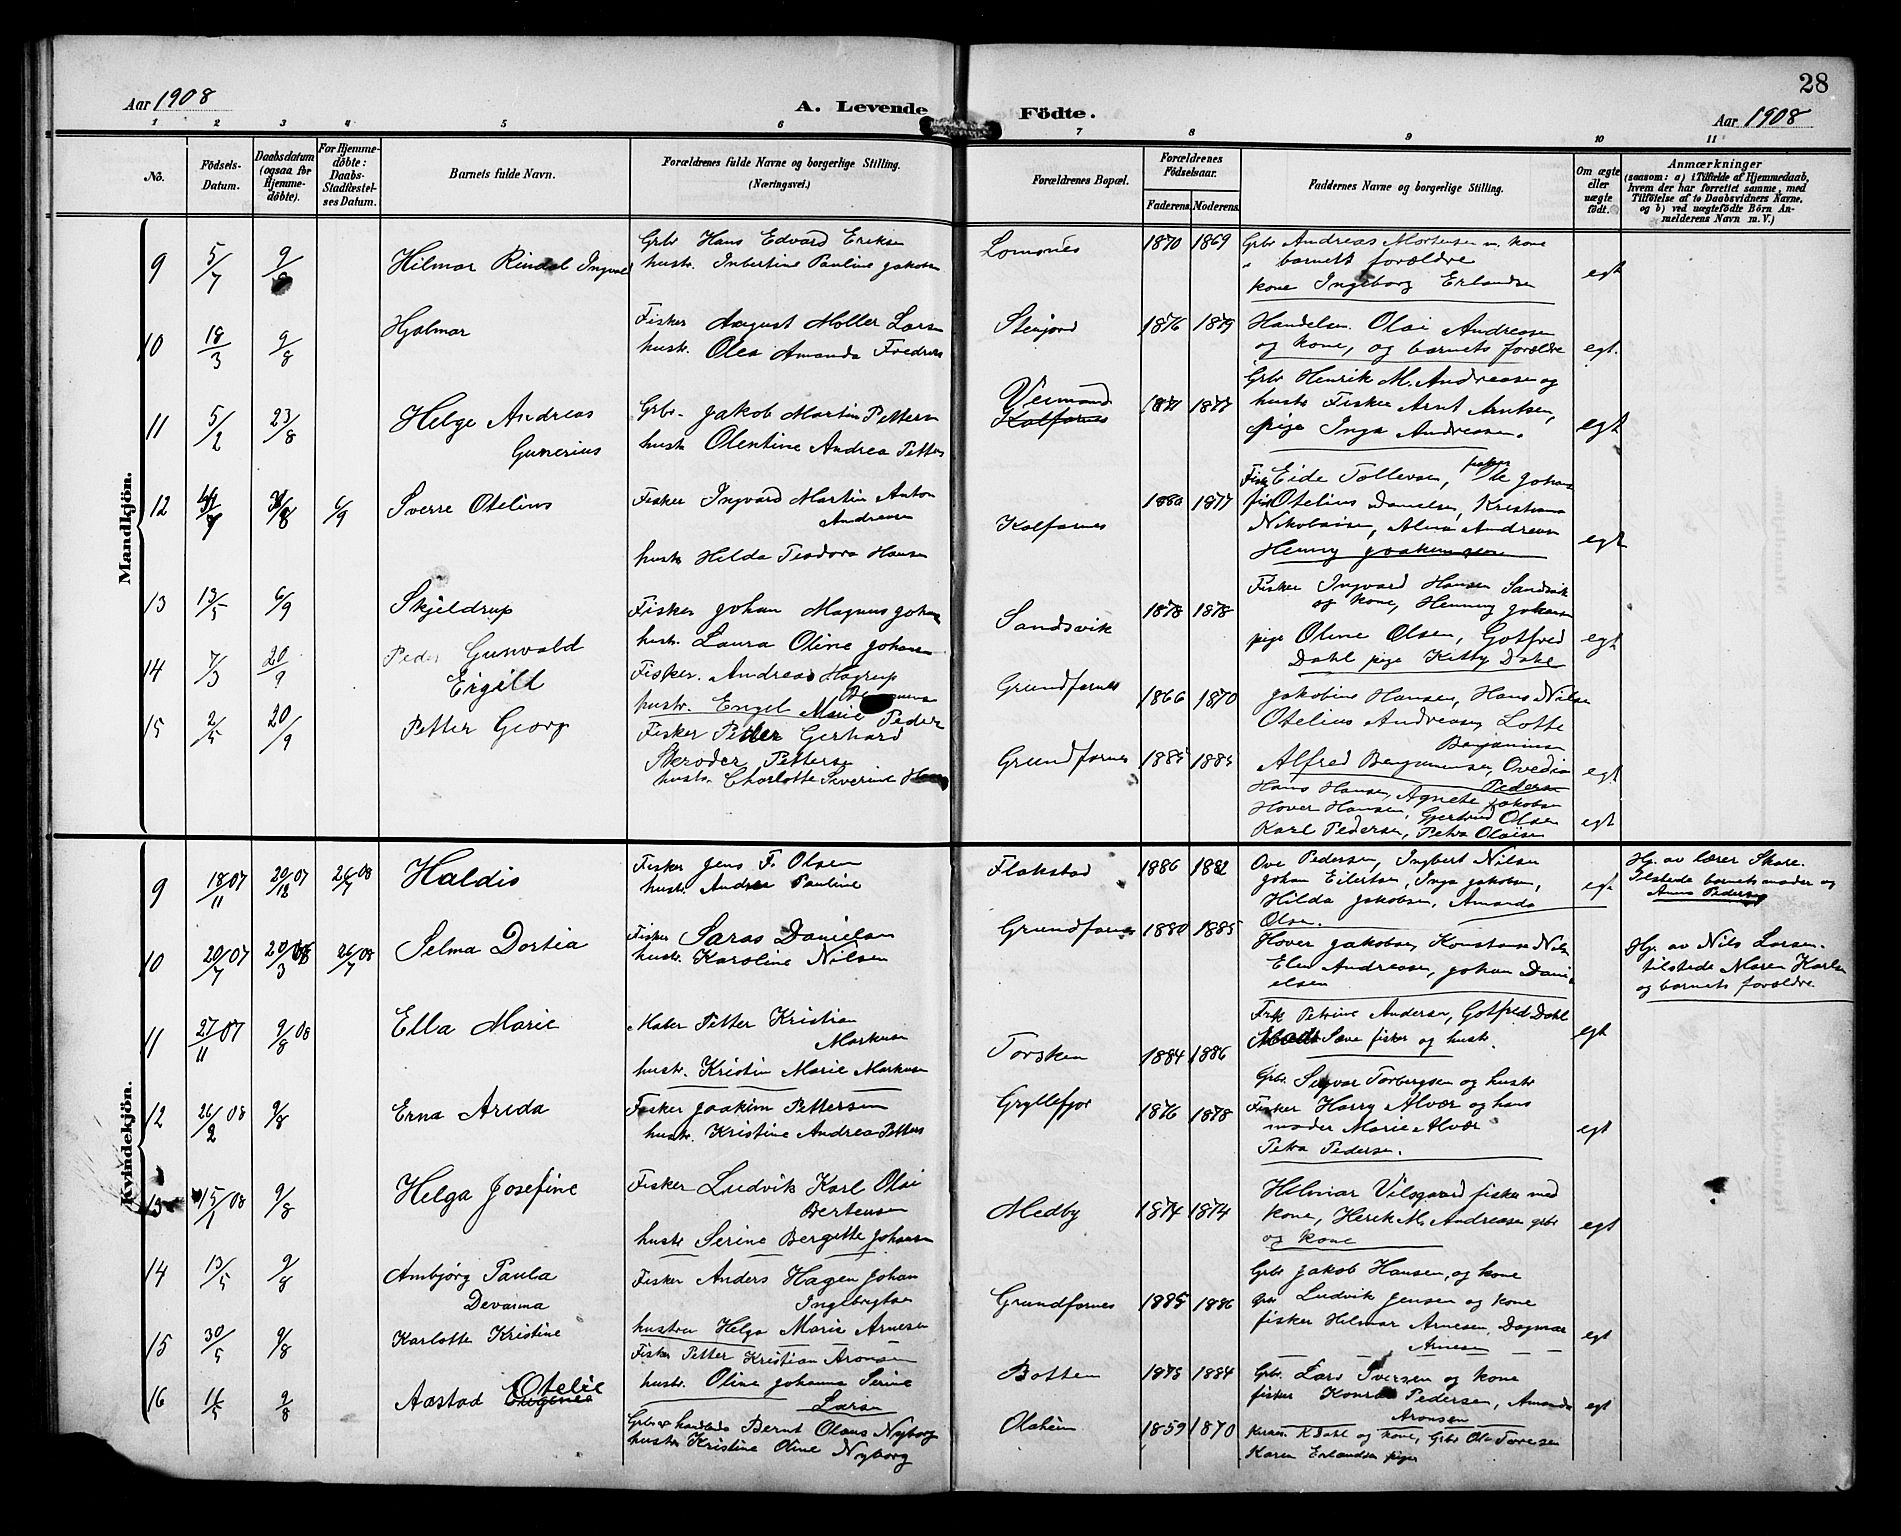 28
Aar 1908
A. Levende Födte.
Aar 1908
1 2 3 4 5 6 7 8 9 10 11
No.
Födsels-
Datum.
Daabsdatum
(ogsaa for
Hjemme-
döbte).
For Hjemme-
döbte:
Daabs-
Stadfæstel-
ses Datum.
Barnets fulde Navn.
Forældrenes fulde Navne og borgerlige Stilling.
(Næringsvei.)
Forældrenes Bopæl.
Forældrenes
Födselsaar.
Faderens. Moderens.
Faddernes Navne og borgerlige Stilling.
Om ægte
eller
uægte
födt.
Anmærkninger
(saasom: a) i Tilfælde af Hjemmedaab,
hvem der har forrettet samme, med
Tilföielse af to Daabsvidners Navne,
og b) ved uægtefödte Börn An-
melderens Navn m. V.)
Mandkjön.
9 5/7 9/8 Hilmar Rindal Ingvald
Grbr Hans Edvard Eriksen
hustr. Inbertine Pauline Jakobs
Lomones 1870 1869
Grbr Andreas Mortensen m. kone
" barnets forældre
kone Ingeborg Erlandsen
egt
10 18/3 9/8 Hjalmar
Fisker August Möller Larsen
hustr. Olea Amanda Fredriks
Stenjord 1876 1879
Handelsm. Olai Andreasen
og kone, og barnets forældre
egt.
11 5/2 23/8 Helge Andreas
Gunerius
Grbr. Jakob Martin Pettersen
hustr Olentine Andrea Petters
Kalfarnes
1877
Grbr Henrik M. Andreasen og
hustr Fisker Arnt Arntsen,
pige Inga Andreasen.
egt
12 6/9 Sverre Otelius
Fisker Ingvard Martin Anton
Andreasen
hustr Hilda Teodora Hansen
Kalfarnes 1880 1877
Eide Tollevsen, Johans
Otelius Danielsen, Kristiana
Nikolaisen, Alma Andreasen
Henny Joakimsen
egt
13 13/5 6/9 Skjeldrup
Fisker Johan Magnus Johans
hustr. Laura Oline Johansen
Sandsvik 1878 1878
Fisker Ingvard Hansen Sandvik
og kone, Henning Johansen
pige Oline Olsen, Gotfred
Dahl pige Kitty Dahl
egt
14 7/3 20/9 Peder Gunvald
Eigill
Fisker. Andreas Hagrup
hustr. Engel Marie Peders
Grundfarnes 1866 1870
Jakobine Hansen, Hans Nilsen
Otelius Andreasen, Lotte
Benjaminsen
Alfred Benjaminsen, Ovedia
Pedersen
egt
15 2/5 20/9 Petter Georg
Fisker Petter Gerhard
Skröder Pettersen
hustr. Charlotte Severine
Grundfarnes 1885 1885
Hans Hansen, Agnete Jakobsen
Hover Hansen, Gjertrud Olsen
Karl Pedersen, Petra Olaisen
egt
Kvindekjön.
9 18/11 07 20/12 07 26/7 08 Haldis
Fisker Jens F. Olsen
hustr. Andrea Pauline
Flakstad 1886 1882
Ove Pedersen, Ingbert Nilsen
Johan Eilertsen, Inga Jakobsen,
Hilda Jakobsen, Amanda
Olsen.
egt
Hj. av lærer Skare.
tilstede barnets moder og
Anna Pedersen
10 20/7 07 20/3 08 26/7 08 Selma Dortia
Fisker Saras Danielsen
hustr. Karoline Nilsen
Grundfarnes 1880 1885
Hover Jakobsen, Konstanse Nils
Elen Andreasen, Johan Dani
elsen
Hj. av Nils Larsen.
tilstede Maren Karlsen
og barnets forældre
11 27/11 07 9/8 08 Ella Marie
Maler Petter Kristian
Markusen
hustr. Kristin Marie Markusen
Torsken 1884 1886
Frk Petrine Andersen, Gotfred Dahl
fisker og hustr.
egt
12 26/2 08 9/8 Erna Arida
Fisker Joakim Pettersen
hustr. Kristine Andrea Petters
Gryllefjor 1876 1878
Grbr. Sigvar Torbergsen og hustr
Fisker Harry Alvær og hans
moder Marie Alvær
Petra Pedersen.
egt
13 15/1 08 9/8 Helga Josefine
Fisker Ludvik Karl Olai
Bertensen
hustr Serine Bergitte Johansen
Medby 1874 1874
Hilmar Vilsgaard fisker med
kone, Herik M. Andreasen grbr
og kone
egt
14 13/5 9/8 Ambjörg Paula
Devarma
Fisker Anders Hagen Johan
Ingebrigtsen
hustru Helga Marie Arnesen
Grundfarnes 1885 1886
Grbr Jakob Hansen, og kone
Grbr Ludvik Jensen og kone
fisker Hilmar Arnesen, Dagmar
Arnesen
egt
15 30/5 9/8 Karlotte Kristine
Fisker Petter Kristian Aronsen
hustr. Oline Johanna Serine
Larsen
Botten 1878 1884
Grbr. Lars Iversen og kone
fisker Konrad Pedersen, Amanda
Aronsen
egt
16 9/8 Aastad Eugenie Otelie
Grbr & handlende Bernt Olaus Nyborg
hustr Kristine Oline Nyborg
Olaheim 1859 1870
K Dahl og kone, Grbr Ola Toresen
Karen Erlandsen pige